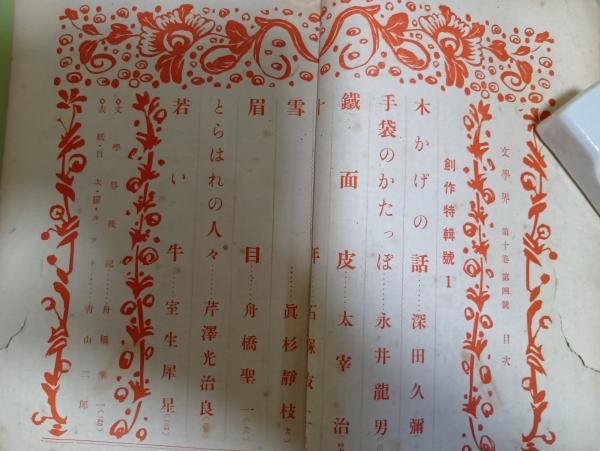 文學界 第十卷 第四號 目次
創作特輯號1
木かげの話……深田久彌
手袋のかたっぽ……永井龍男
鐵面皮……太宰治
十年……石塚友二
雪……眞杉靜枝
眉目……舟橋聖一
とらはれの人々……芹澤光治良
若い牛……室生犀星
文學界後記……舟橋聖一
表紙・目次・扉・カット……靑山二郎